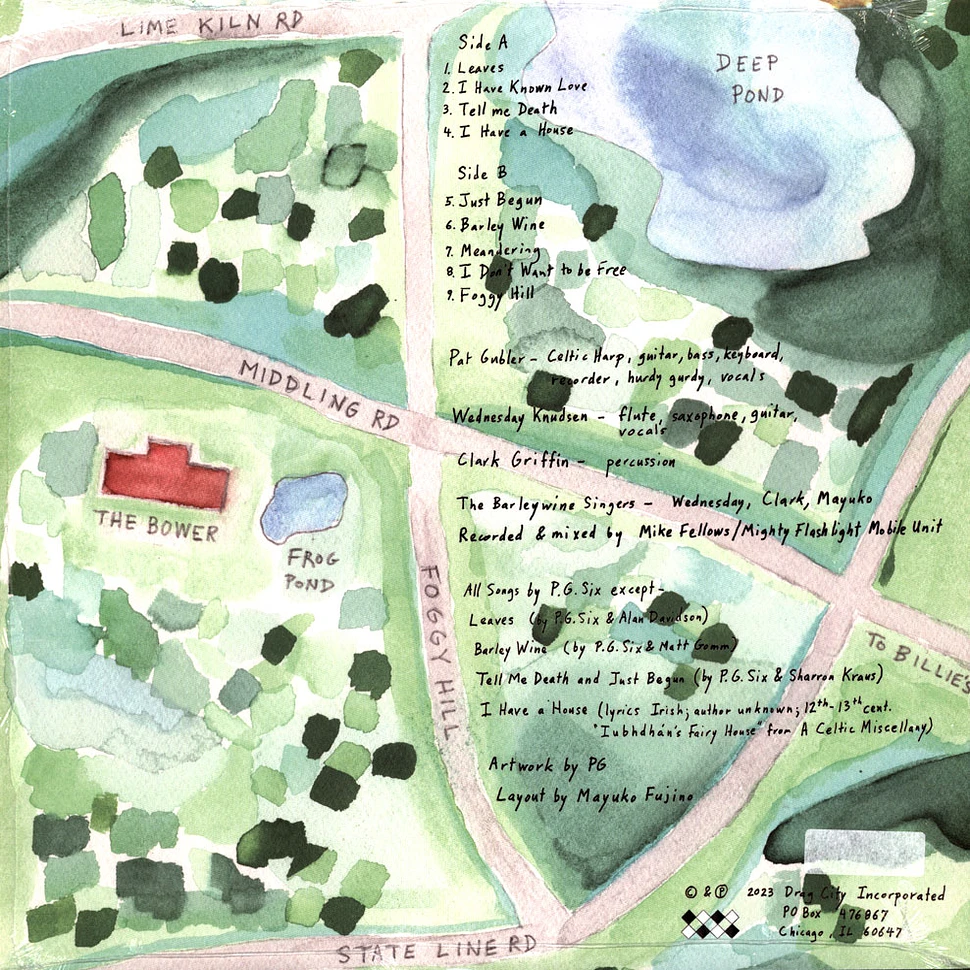 LIME KILN RD
Side A
1. Leaves
2. I Have Known Love
3. Tell me Death
4. I Have a House
Side B
5. Just Begun
6. Barley Wine
7. Meandering
8. I Don't Want to be Free
9. Foggy Hill
DEEP
POND
MIDDLING RD
THE BOWER
FROG
POND
FOGGY HILL
TO BILLIE'S
STATE LINE RD
Pat Gubler - Celtic Harp, guitar, bass, keyboard,
recorder, hurdy gurdy, vocals
Wednesday Knudsen - flute, saxophone, guitar,
vocals
Clark Griffin - percussion
The Barleywine Singers - Wednesday, Clark, Mayuko
Recorded & mixed by Mike Fellows/Mighty Flashlight Mobile Unit
All Songs by P.G. Six except-
Leaves (by P.G. Six & Alan Davidson)
Barley Wine (by P.G. Six & Matt Gomm)
Tell Me Death and Just Begun (by P.G. Six & Sharron Kraus)
I Have a House (lyrics Irish; author unknown; 12th-13th cent.
"Iubhdhán's Fairy House" from A Celtic Miscellany)
Artwork by PG
Layout by Mayuko Fujino
© & ℗ 2023 Drag City Incorporated
PO Box 476867
Chicago, IL 60647